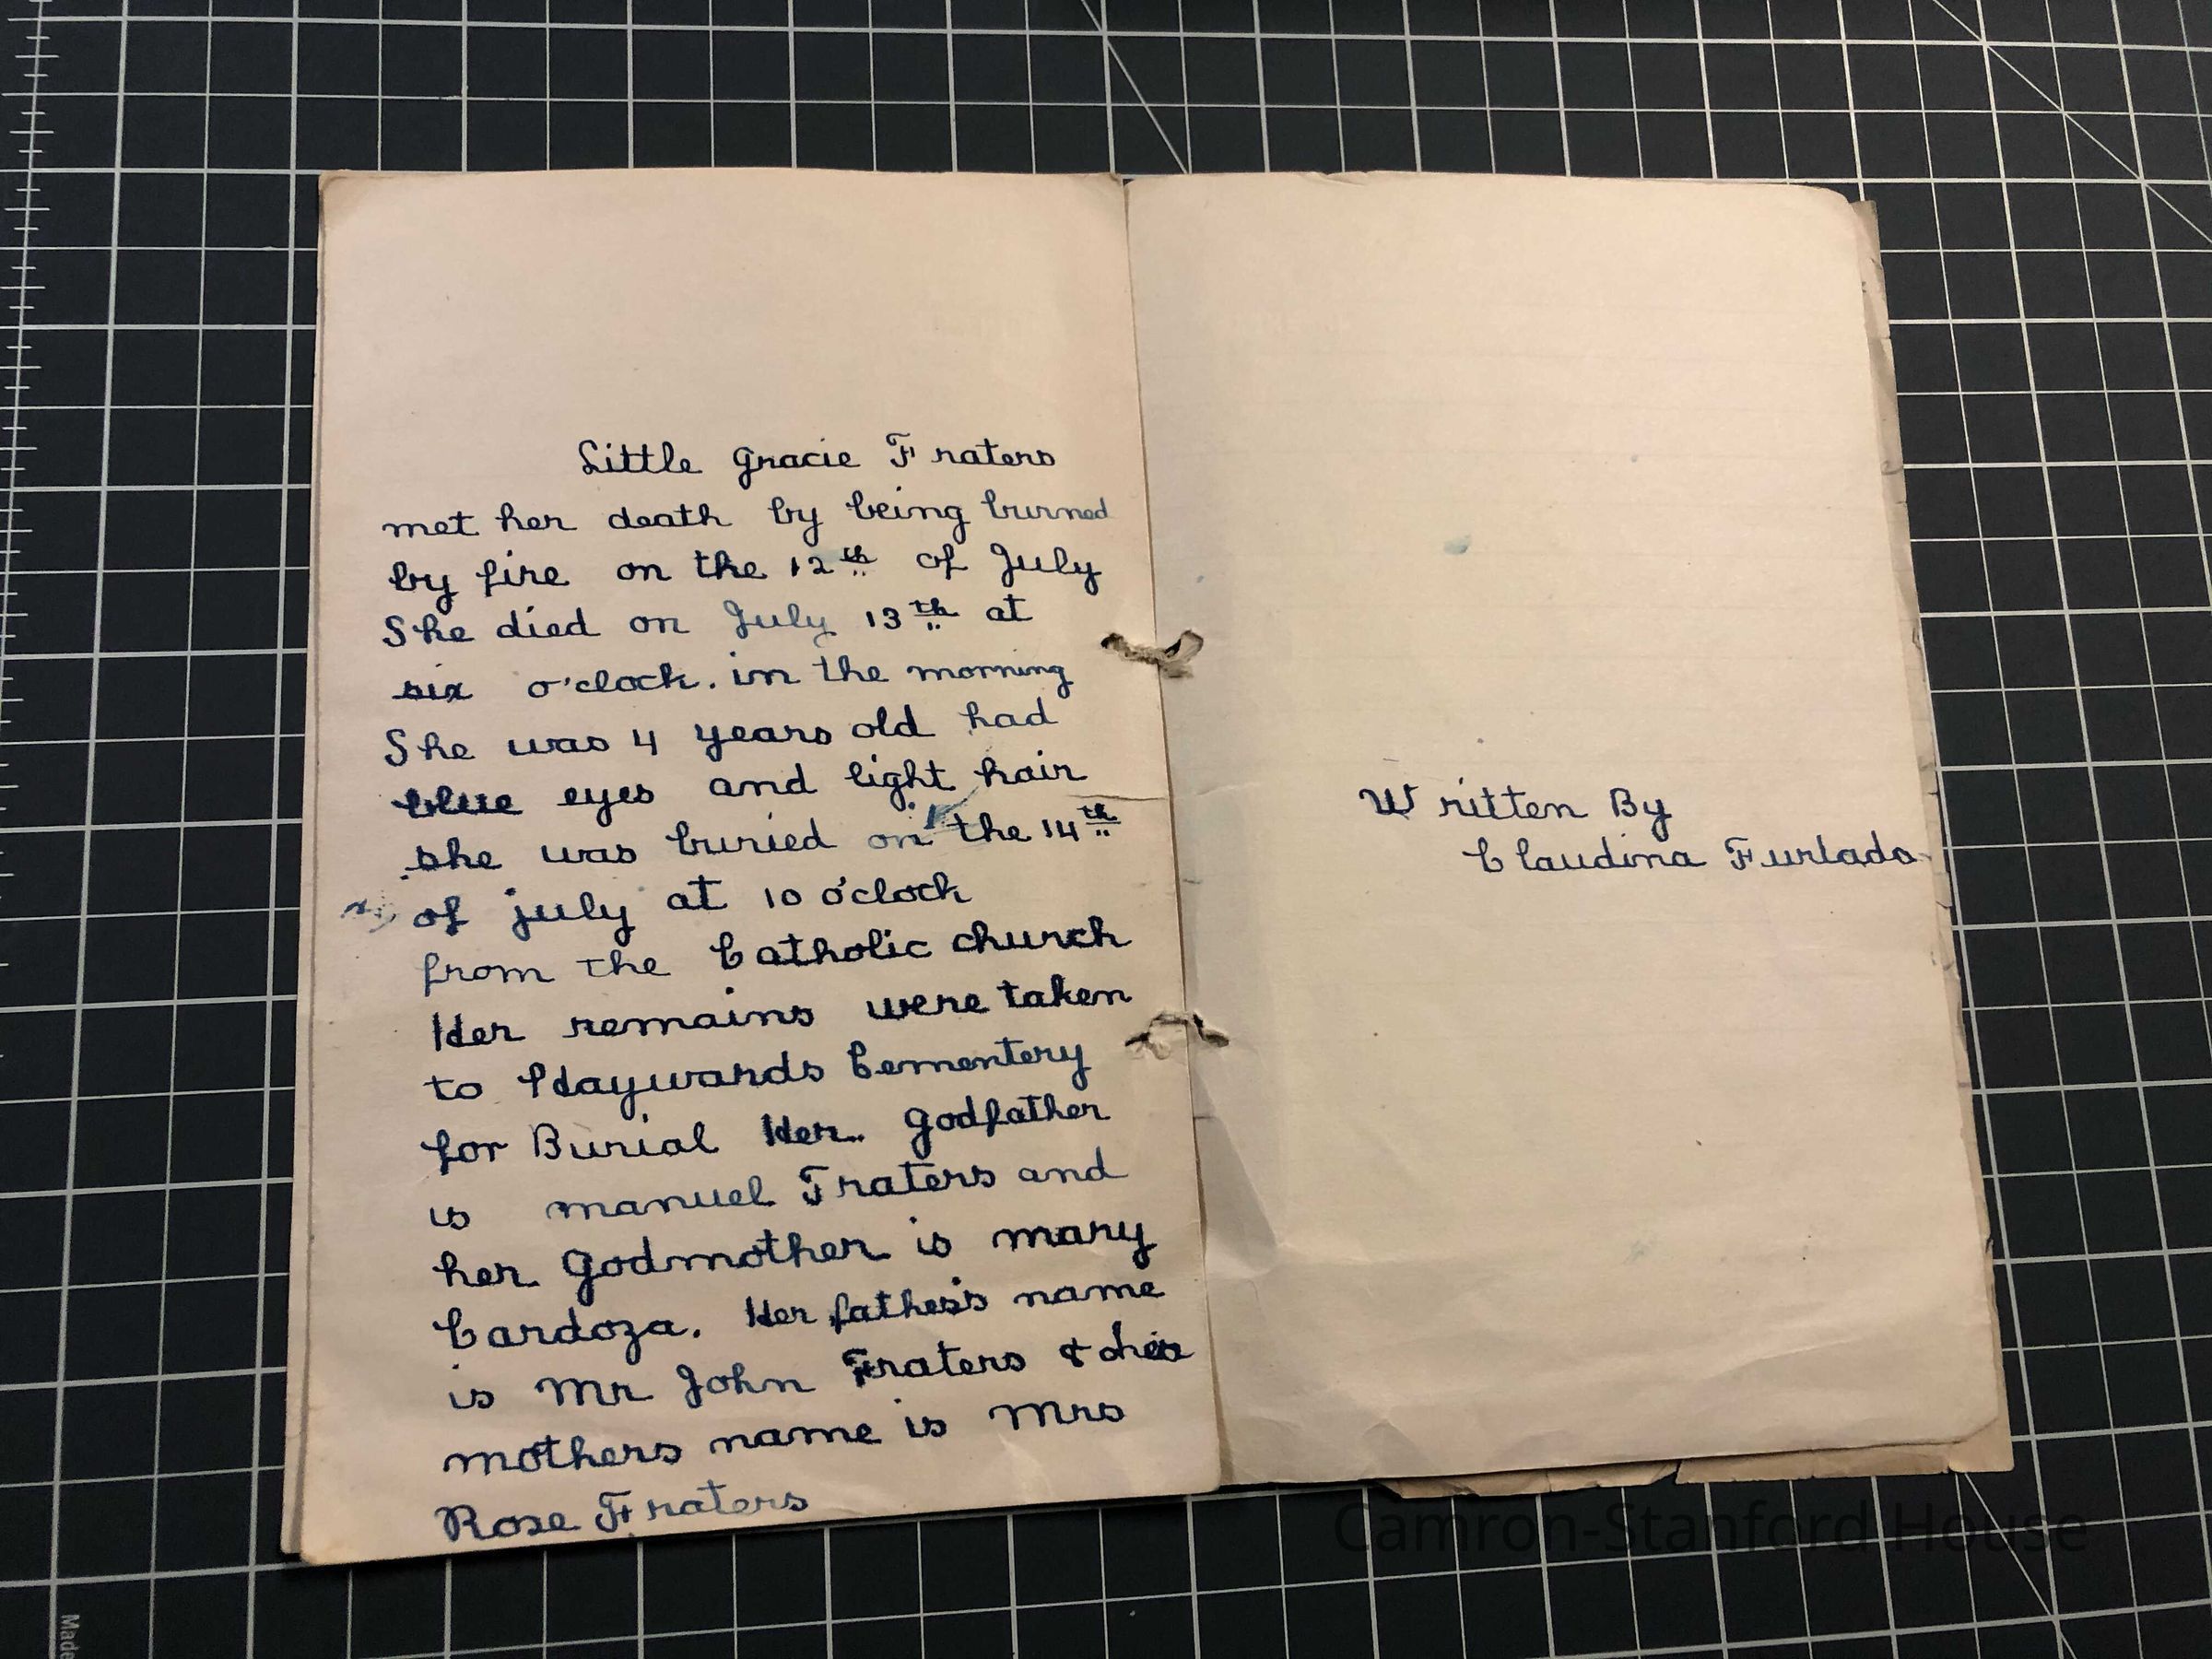 Little Gracie Fraters
met her death by being burned
by fire on the 12th of July
She died on July 13th at
six o'clock. in the morning
She was 4 years old had
blue eyes and light hair
she was buried on the 14th
of july at 10 o'clock
from the Catholic church
Her remains were taken
to Haywards Cementery
for Burial Her Godfather
is manuel Fraters and
her Godmother is mary
Cardoza. Her father's name
is Mr John Fraters &
mothers name is Mrs
Rose Fraters
Written By
Claudina Furtado
Camron-Stanford House
Made